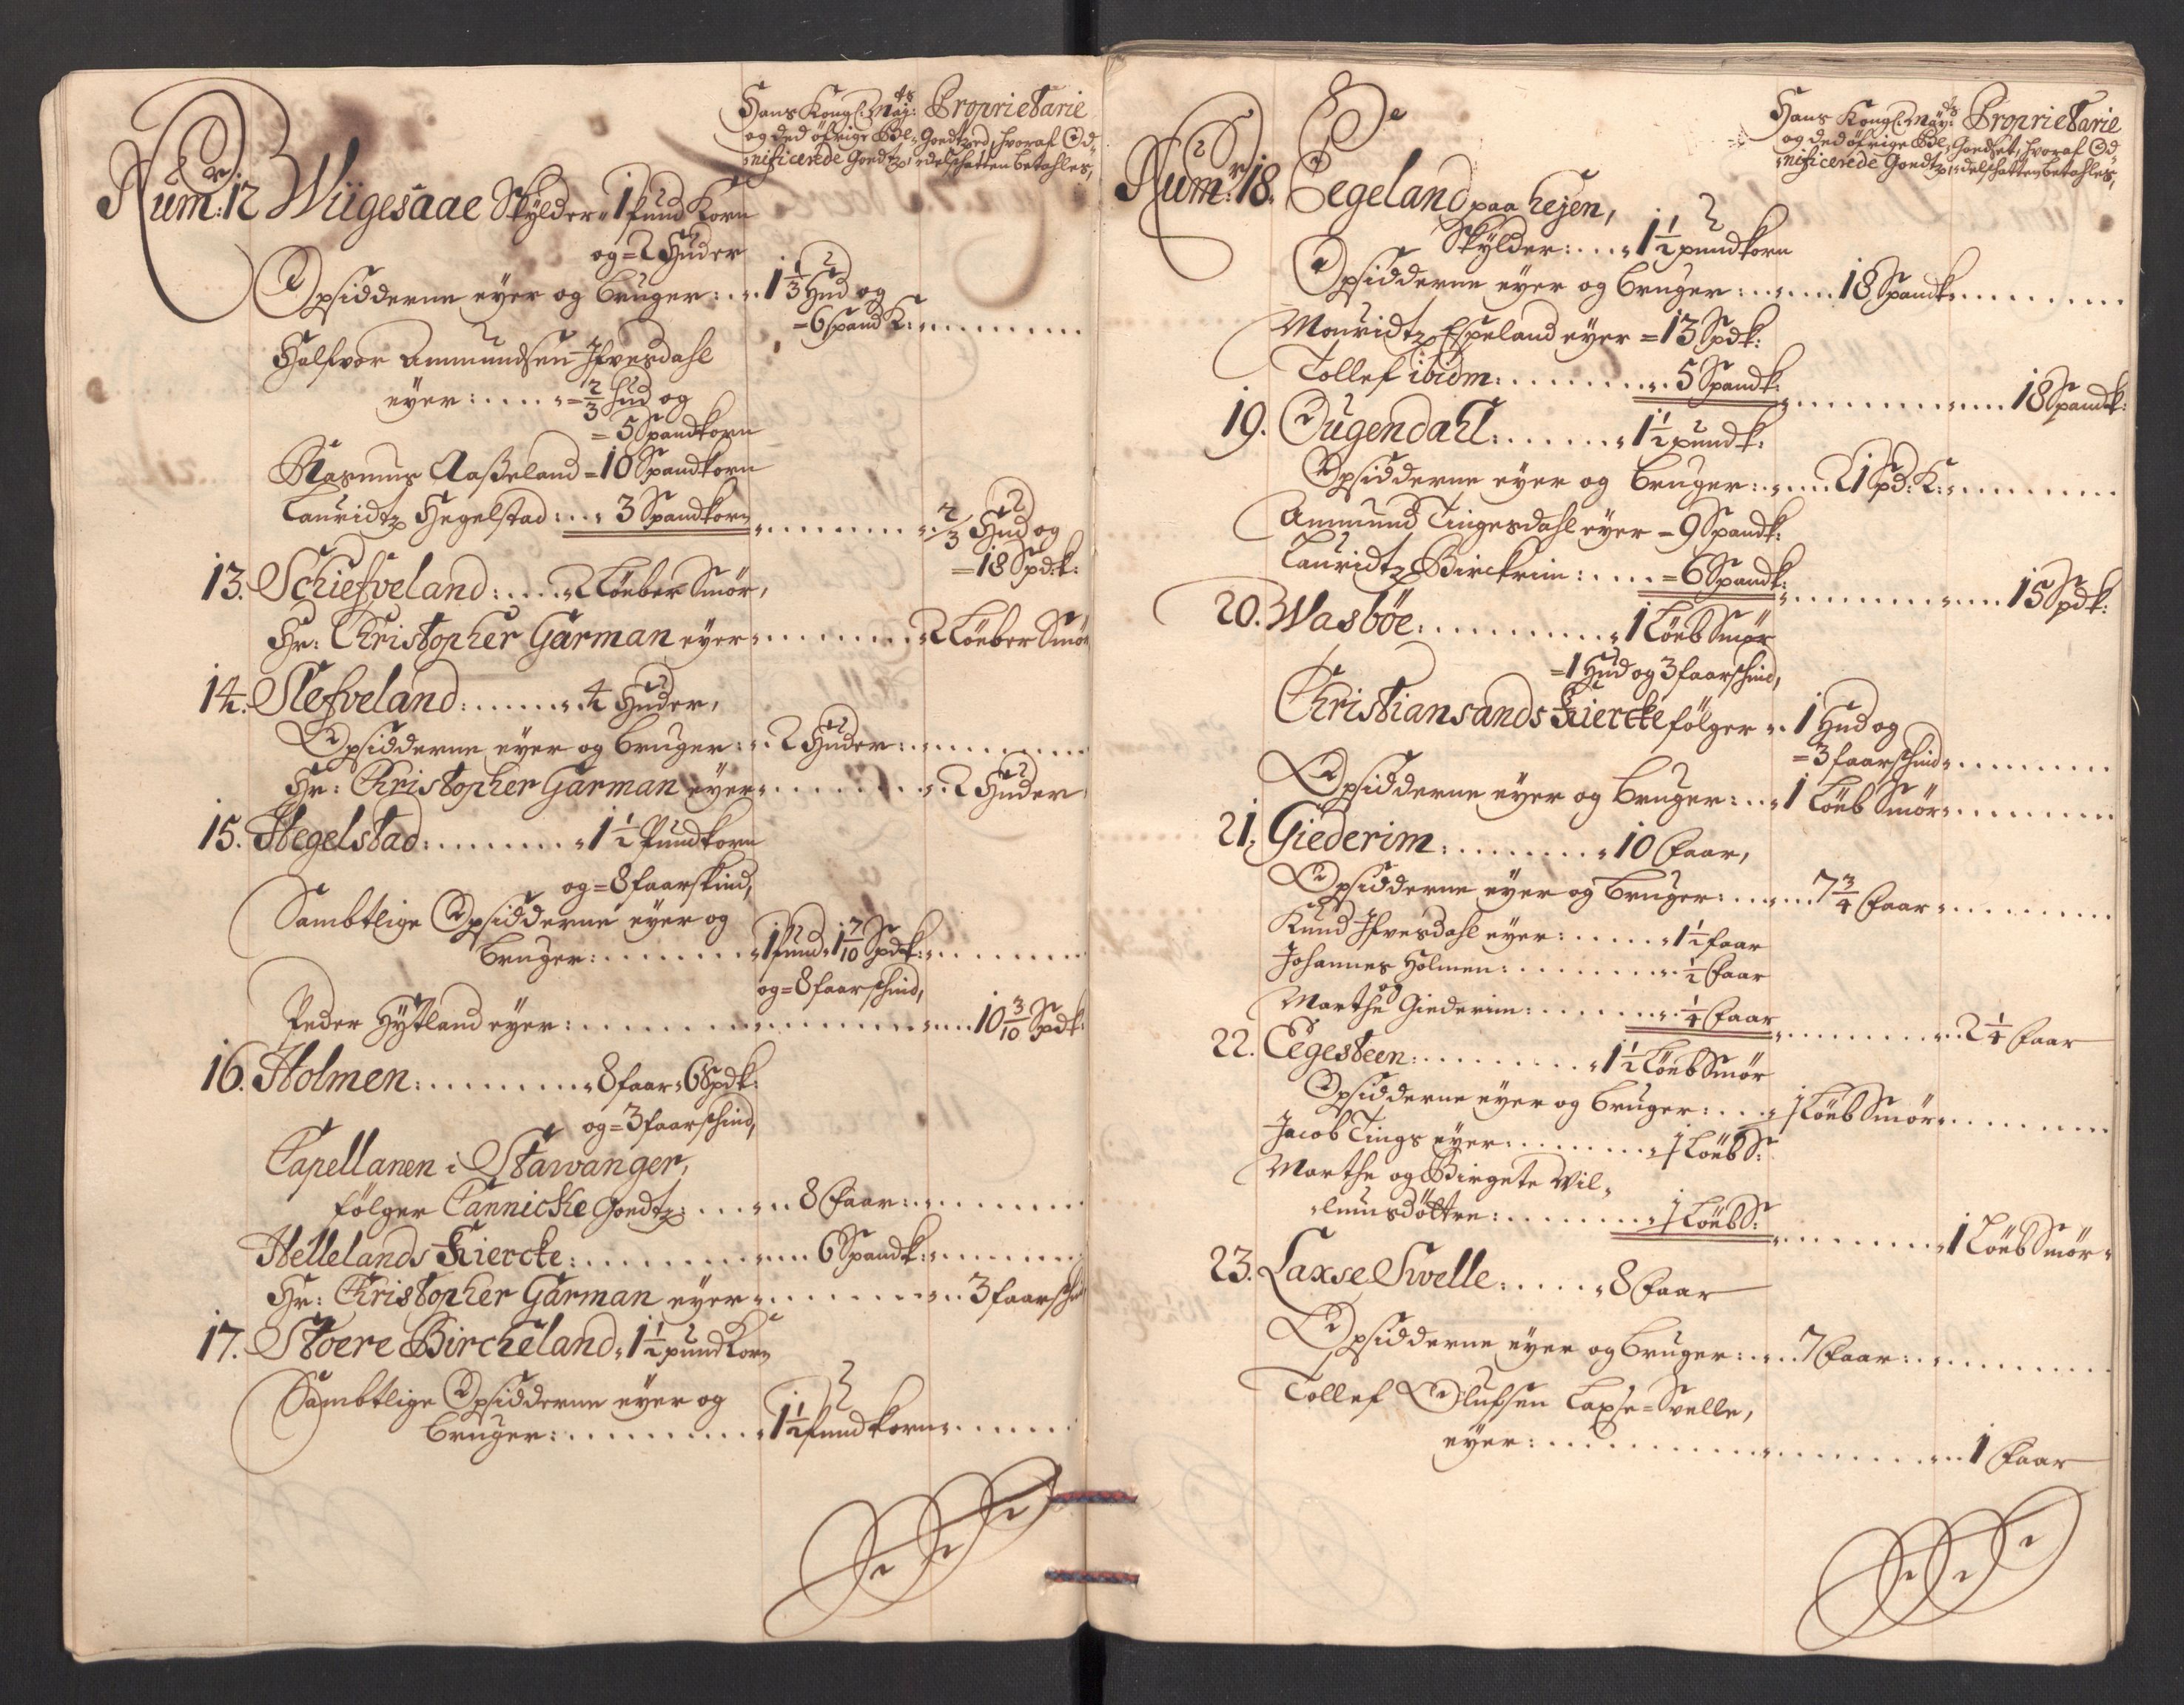 Hans Kongl: Maÿ:ts Proprietarie
og ded öfrige Bøl= Goedtzed, hvoraf Od=
nificerede Goedtz, =delschatten betahles,
Num: 12 Wiigesaae Skÿlder 1 pund Korn
og = 2 Huder
Opsidderne eÿer og bruger: 1 1/3 Hud og
= 6 spand K:
Halfvor Ammundsen Ifvesdahl
eÿer: = 2/3 hud og
= 5 Spandkorn
Rasmus Aasseland = 10 Spandkorn
Lauridtz Hegelstad: 3 Spandkorn
2/3 Hud og
= 18 Spd:k:
13. Schiefveland: 2 Löeber Smör,
Hr: Christopher Garman eÿer 2 Löeber Smör
14. Slefveland: 4 Huder,
Opsidderne eÿer og bruger: 2 Huder:
Hr: Christopher Garman eÿer 2 Huder
15. Hegelstad: 1 1/2 Pundkorn
og = 8 faarskind,
Sambtlige Opsidderne eÿer og
bruger: 1 pund 1 7/10 Spdk:
og = 8 faarschind,
Peder Hÿtland eÿer: 10 3/10 Spdk:
16. Holmen: 8 faar 6 Spdk:
og = 3 faarschind,
Capellanen i Stawanger,
fölger Cannicke Goedtz: 8 Faar:
Hellelands Kiercke: 6 Spandk:
Hr: Christopher Garman eÿer 3 faarsch
17. Stoere Bircheland 1 1/2 pund Korn
Sambtlige Opsidderne eÿer og
bruger: 1 1/2 pund korn
Hans Kongl: Maÿ:ts Proprietarie
og ded öfrige Bøl= Goedset, hvoraf Od
nificerede Goedtz, =delschatten betahles,
Num: 18. Eegeland paa heÿen,
Skÿlder: 1 1/2 pundkorn
Opsidderne eÿer og bruger: 18 Spandk
Mouridtz Espeland eÿer = 13 Spdk:
Tollef ibidm: 5 Spandk:
18 Spandk:
19. Ougendahl: 1 1/2 pundk:
Opsidderne eÿer og bruger: 21 Spd: K:
Ammund Tingesdahl eÿer = 9 Spandk:
Lauridtz Birckrim: = 6 Spandk:
15 Spdk:
20. Wasböe: 1 Löeb Smör
= 1 Hud og 3 faarschind,
Christiansands Kiercke fölger 1 Hud og
= 3 faarschind
Opsidderne eÿer og bruger: 1 Löeb Smör
21. Giederim: 10 Faar,
Opsidderne eÿer og bruger: 7 3/4 Faar
Knud Ifvesdahl eÿer: 1 1/2 faar
Johannes Holmen: 1/2 Faar
og
Marthe Giederim: 1/4 Faar
2 1/4 Faar
22. Eegesteen: 1 1/2 Löeb Smör
Opsidderne eÿer og bruger: 1/2 Löeb Smör
Jacob Tings eÿer: 1/2 Löeb S:
Marthe og Birgete Wil=
=lumsdöttre: 1/2 Löeb S:
1 Löeb Smör
23. Laxse Svelle: 8 Faar
Opsidderne eÿer og bruger: 7 Faar:
Tollef Olufsen Laxse=Svelle,
eÿer: 1 Faar